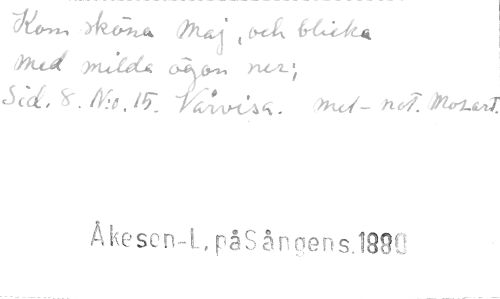 Kom sköna Maj, och blicka
med milda ögon ner;
Sid. 8. N:o. 15. Vårvisa. met-not. Mozart.
Åkeson-L, på Sångens. 1880